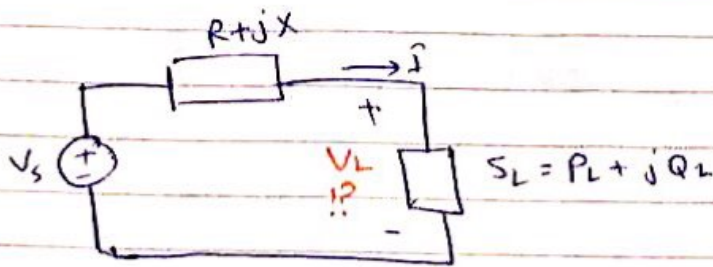 R+jX
I
+
Vs
+
-
VL
!?
SL = PL + jQL
-